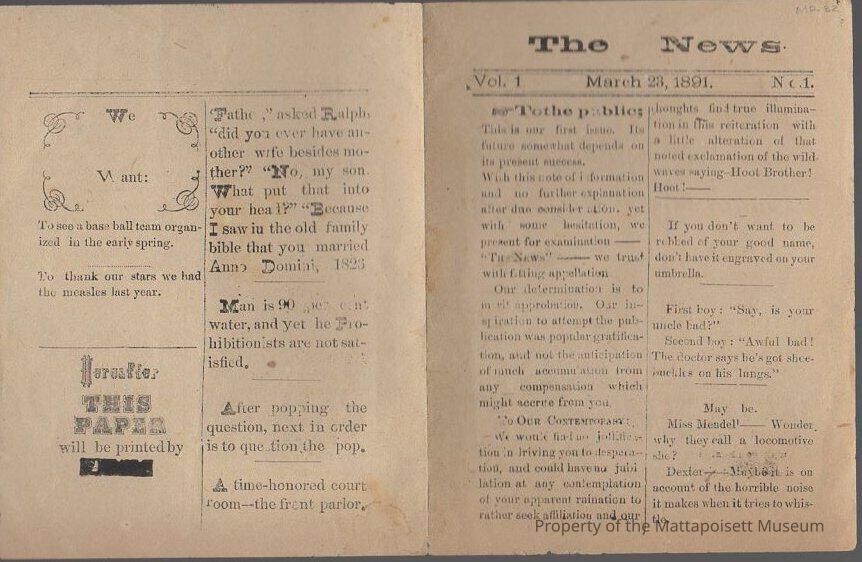 We
Want:
To see a base ball team organ-
ized in the early spring.
To thank our stars we had
the measles last year.
Hereafter
THIS
PAPER
will be printed by
"Fathe ," asked Ralph,
"did you ever have an-
other wife besides mo-
ther?" "No, my son.
What put that into
your head?" "Because
I saw iu the old family
bible that you married
Anno Domini, 1823
Man is 90 per cent
water, and yet he Pro-
hibitionists are not sat-
isfied.
After popping the
question, next in order
is to que tion the pop.
A time-honored court
room—the front parlor.
MR-82
The News.
Vol. 1 March 23, 1891. No.1.
To the public;
This is our first issue. Its
future somewhat depends on
its present success.
With this note of i formation
and no further explanation
after due consider ation, yet
with some hesitation, we
present for examination —
"The News" — we trust
with fitting appellation
Our determination is to
m rit approbation. Our in-
spiration to attempt the pub-
lication was popular gratifica-
tion, and not the anticipation
of much accumulation from
any compensation which
might accrue from you.
To Our Contemporary:
We would find no jollifica-
tion in driving you to despera-
tion, and could have no jubi
lation at any contemplation
of your apparent ruination to
rather seek affiliation and our
thoughts find true illumina-
tion in this reiteration with
a little alteration of that
noted exclamation of the wild-
waves saying-Hoot Brother!
Hoot!—
If you don't want to be
robbed of your good name,
don't have it engraved on your
umbrella.
First boy: "Say, is your
uncle bad?"
Second boy: "Awful bad!
The doctor says he's got shoe-
buckles on his lungs."
May be.
Miss Mendell— Wonder
why they call a locomotive
she?
Dexter— Maybe it is on
account of the horrible noise
it makes when it tries to whis-
tle.
Property of the Mattapoisett Museum